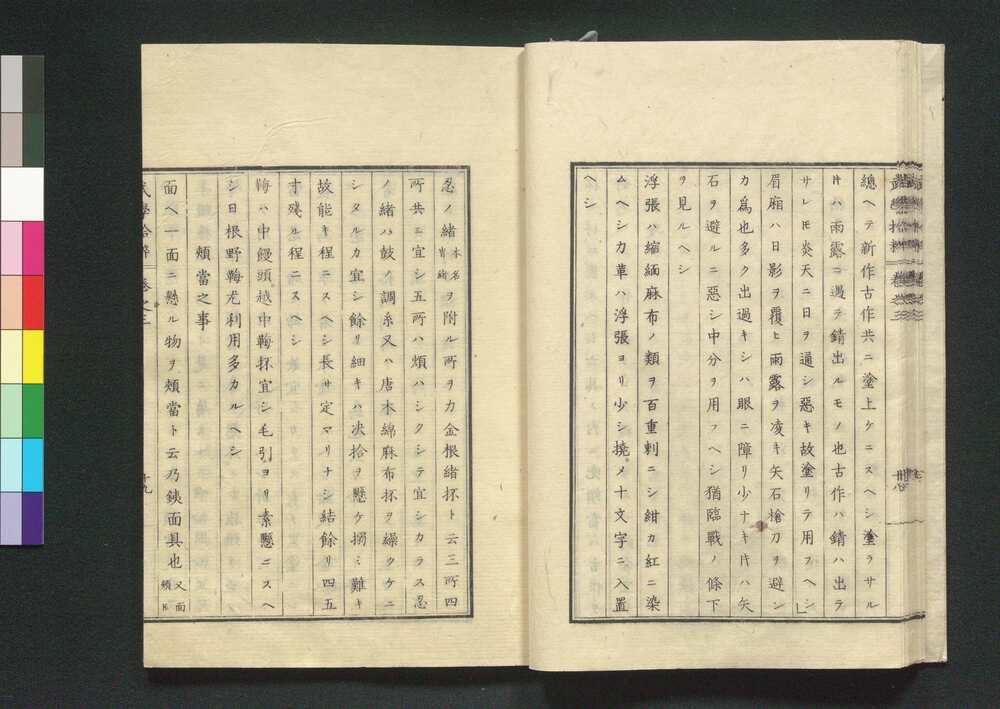 總ヘテ新作古作共ニ塗上ケニスヘシ塗ラサル
𪜈ハ雨露ニ遇テ錆出ルモノ也古作ハ錆ハ出ラ
サレ𪜈炎天ニ日ヲ通シ惡キ故塗リテ用フヘシ」
眉廂ハ日影ヲ覆ヒ雨露ヲ凌キ矢石槍刀ヲ避シ
カ爲也多ク出過キシハ眼ニ障リ少ナキ𪜈ハ矢
石ヲ避ルニ惡シ中分ヲ用フヘシ猶臨戰ノ條下
ヲ見ルヘシ
浮張ハ縮緬麻布ノ類ヲ百重刺ニシ紺カ紅ニ染
ムヘシカ革ハ浮張ヨリ少シ撓メ十文字ニ入置
ヘシ
忍ノ緒本名冑綸ヲ附ル所ヲカ金根緒抔ト云三所四
所共ニ宜シ五所ハ煩ハシクシテ宜シカラス忍
ノ緒ハ鼓ノ調糸又ハ唐木綿麻布抔ヲ繰クケニ
シタルカ宜シ餘リ細キハ决拾ヲ懸ケ搊ミ難キ
故能キ程ニスヘシ長サ定マリナシ結餘リ四五
寸殘ル程ニスヘシ
鞠ハ中饅頭越中鞠抔宜シ毛引ヨリ素懸ニスヘ
シ日根野鞠尤利用多カルヘシ
頰當之事
面ヘ一面ニ懸ル物ヲ頰當ト云乃銕面具也又面頰𪜈